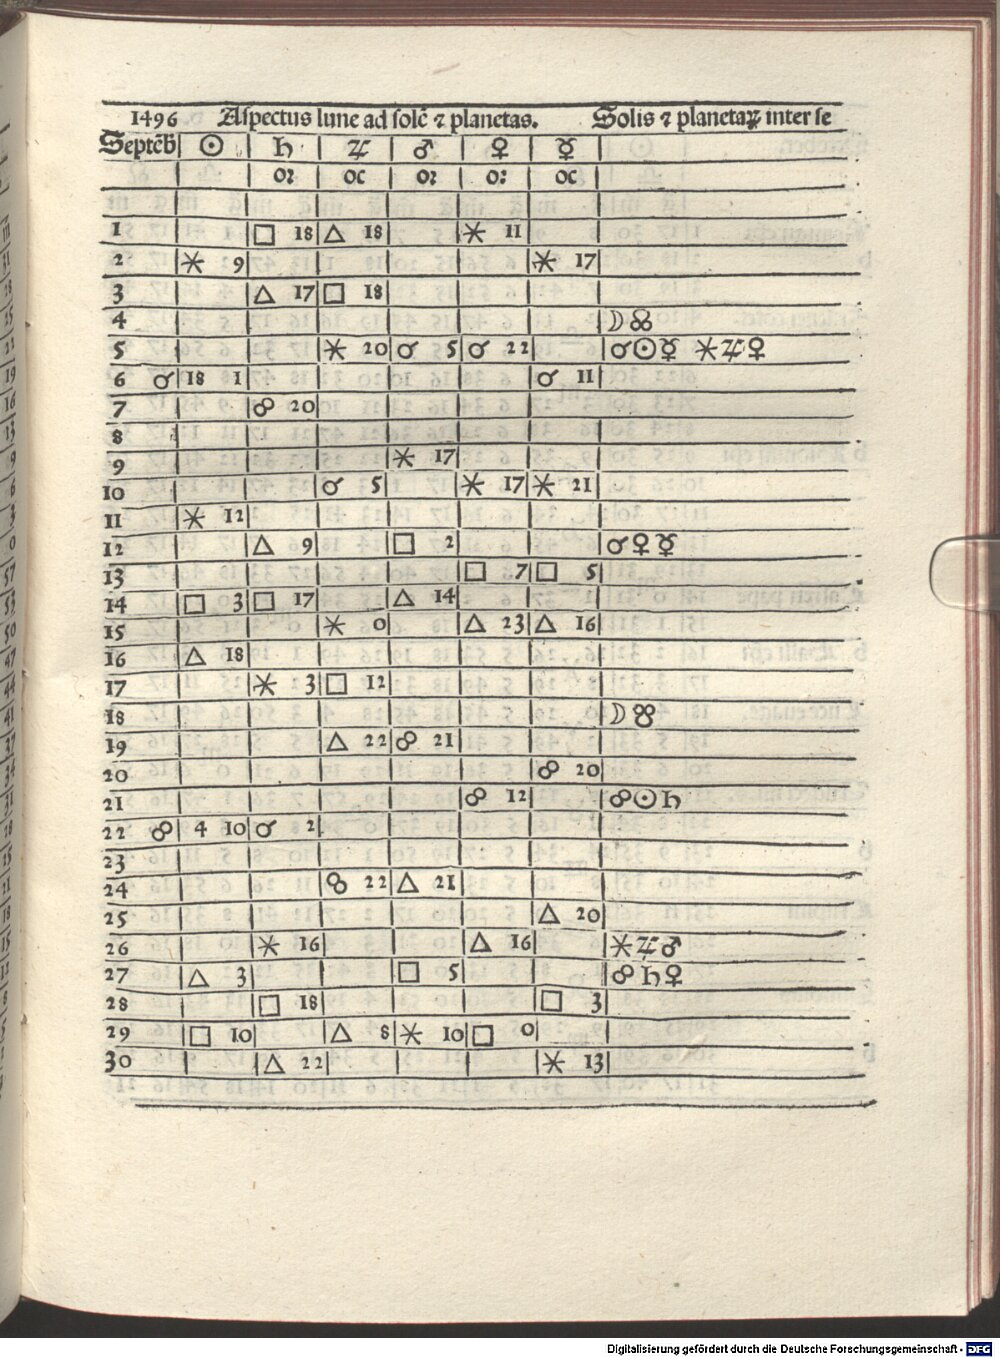 1496 Aspectus lune ad solē ⁊ planetas. Solis ⁊ planetaꝝ inter se
Septēb ☉ ♄ ♃ ♂ ♀ ☿
oꝛ oc oꝛ oꝛ oc
1 □ 18 △ 18 ⚹ 11
2 ⚹ 9 ⚹ 17
3 △ 17 □ 18
4 ☽☋
5 ⚹ 20 ☌ 5 ☌ 22 ☌☉☿ ⚹♃♀
6 ☌ 18 1 ☌ 11
7 ☍ 20
8
9 ⚹ 17
10 ☌ 5 ⚹ 17 ⚹ 21
11 ⚹ 12
12 △ 9 □ 2 ☌♀☿
13 □ 7 □ 5
14 □ 3 □ 17 △ 14
15 ⚹ 0 △ 23 △ 16
16 △ 18
17 ⚹ 3 □ 12
18 ☽☊
19 △ 22 ☍ 21
20 ☍ 20
21 ☍ 12 ☍☉♄
22 ☍ 4 10 ☌ 2
23
24 ☍ 22 △ 21
25 △ 20
26 ⚹ 16 △ 16 ⚹♃♂
27 △ 3 □ 5 ☍♄♀
28 □ 18 □ 3
29 □ 10 △ 8 ⚹ 10 □ 0
30 △ 22 ⚹ 13
Digitalisierung gefördert durch die Deutsche Forschungsgemeinschaft - DFG